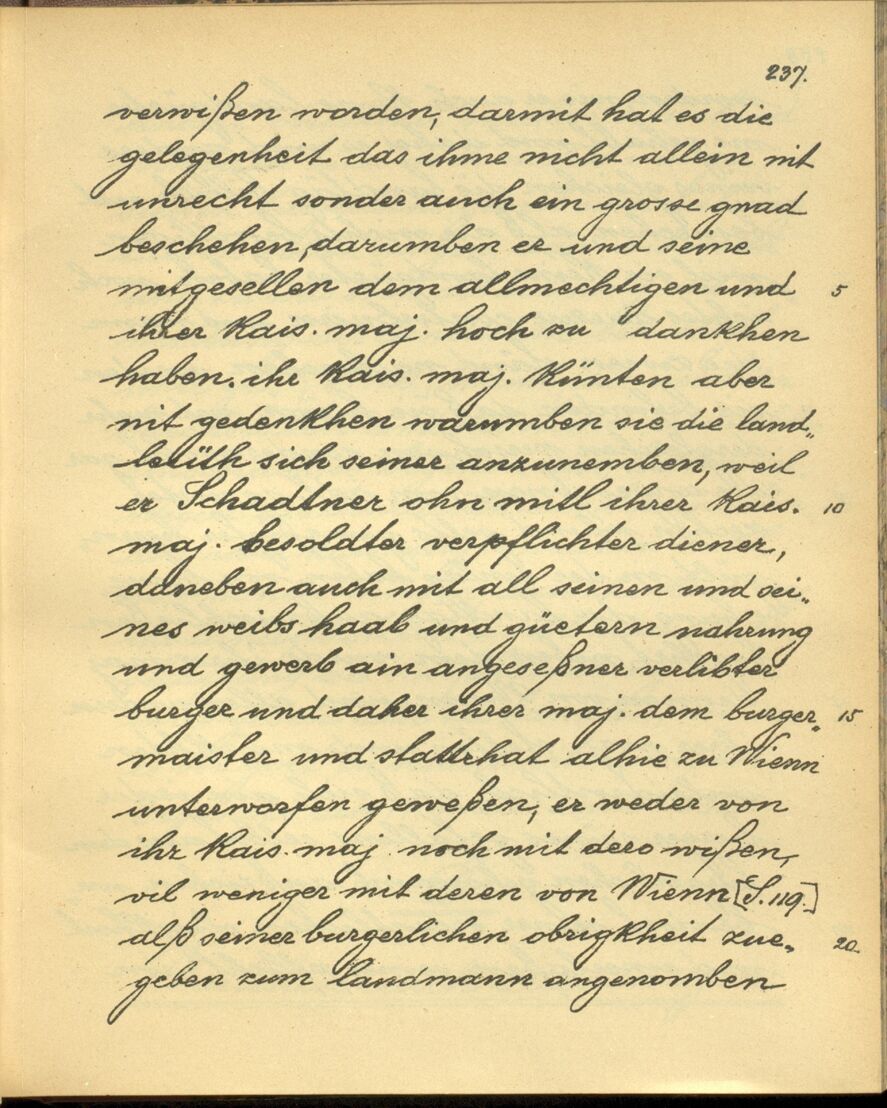 237.
verwißen worden, darmit hat es die
gelegenheit das ihme nicht allein nit
unrecht sonder auch ein grosse gnad
beschehen, darumben er und seine
mitgesellen dem allmechtigen und 5
ihrer Kais. maj. hoch zu dankhen
haben. ihr Kais. maj. Künten aber
nit gedenkhen warumben sie die land„
leüth sich seiner anzunemben, weil
er Schadtner ohn mitl ihrer Kais. 10
maj. besoldter verpflichter diener,
daneben auch mit all seinen und sei„
nes weibs haab und güetern nahrung
und gewerb ain angeseßner verlibter
burger und daher ihrer maj. dem burger„ 15
maister und stattrhat alhie zu Wienn
unterworfen geweßen, er weder von
ihr Kais. maj noch mit dero wißen,
vil weniger mit deren von Wienn [S. 119.]
alß seiner burgerlichen obrigkheit zue„ 20
geben zum landmann angenomben